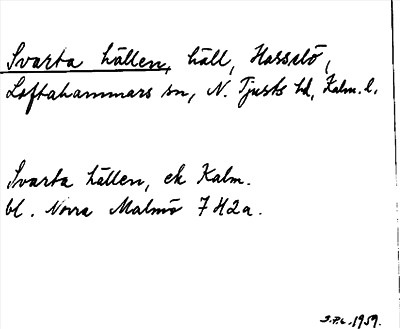 Svarta hällen, häll, Hasselö,
Loftahammars sn, N. Tjusts hd, Kalm. l.
Svarta hällen, ek Kalm.
bl. Norra Malmö 7 H2a.
1959.